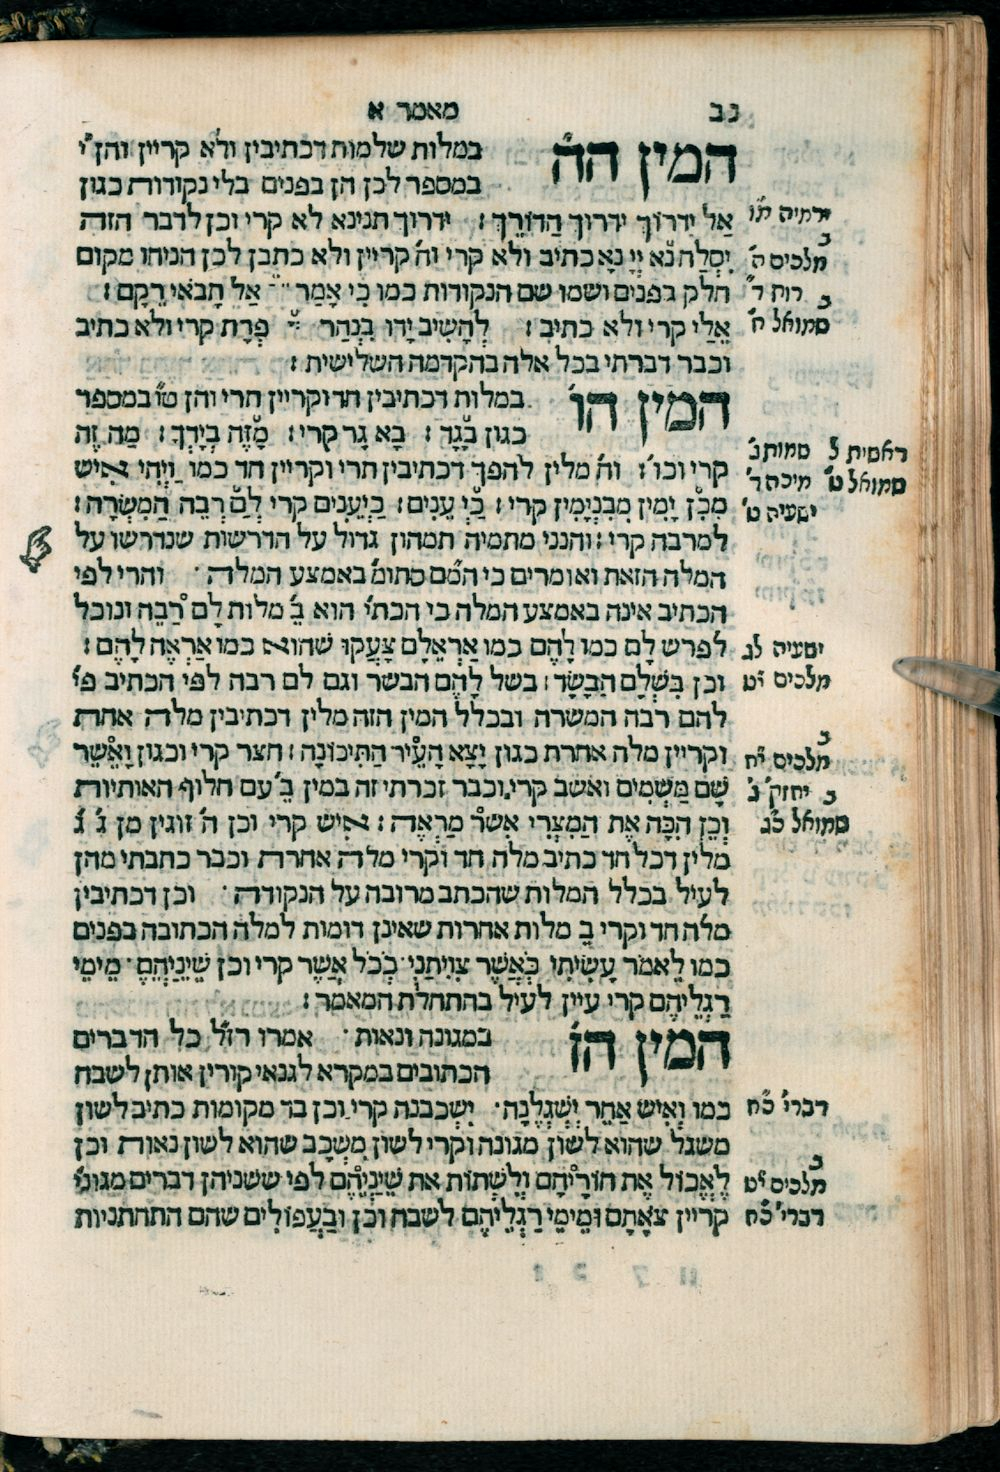 נב מאמר א
המין הה׳ במלות שלמות דכתיבין ולא קריין והן י״
במספר לכן הן בפנים בלי נקודות כגון
ירמיה
אַל יִדְרוֹךְ ידרוך הַדּוֹרֵךְ : ידרוך תנינא לא קרי וכן לדבר הזה
ב
מלכים ה׳
יִסְלַח נָא יְיָ נא כתיב ולא קרי וה׳ קריין ולא כתבן לכן הניחו מקום
רות
חלק בפנים ושמו שם הנקודות כמו כִּי אָמַר אַל תָּבֹאִי רֵקָם :
ב
שמואל ח׳
אֵלַי קרי ולא כתיב : לְהָשִׁיב יָדוֹ בִּנְהַר פְּרָת קרי ולא כתיב
וכבר דברתי בכל אלה בהקדמה השלישית :
המין הו׳ במלות דכתיבין חד וקריין תרי והן ט״ו במספר
כגון בָּגָד : בָּא גָד קרי : מַזֶּה בְיָדֶךָ : מַה זֶּה
ראשית ל שמות
קרי וכו׳ : וה׳ מלין להפך דכתיבין תרי וקריין חד כמו וַיְהִי אִישׁ
שמואל ט׳ מיכה
מִבִּן יָמִין מִבִּנְיָמִין קרי : כַּיְ עֵנִים : כַּיְעֵנִים קרי לְםַ רְבֵּה הַמִּשְׂרָה :
ישעיה ט׳
למרבה קרי : והנני מתמיה תמהון גדול על הדרשות שנדרשו על
המלה הזאת ואומרים כי המ״ם סתומ׳ באמצע המלה · והרי לפי
הכתיב אינה באמצע המלה כי הכתי׳ הוא ב׳ מלות לַם רַבֵּה ונוכל
ישעיה לג
לפרש לָם כמו לָהֶם כמו אֶרְאֶלָּם צָעֲקוּ שהוא כמו אֶרְאֶה לָהֶם :
מלכים י״ט
וכן בִּשְּׁלָם הַבָּשָׂר : בשל לָהֶם הבשר וגם לם רבה לפי הכתיב פי׳
להם רבה המשרה ובכלל המין הזה מלין דכתיבין מלה אחת
ב
מלכים
וקריין מלה אחרת כגון יָצָא הָעִיר הַתִּיכוֹנָה : חצר קרי וכגון וָאֲשֵׁר
יחזק׳
שָׁם מַשְׁמִים ואשב קרי. וכבר זכרתי זה במין ב׳ עם חלוף האותיות
ב
שמואל כג
וְכֵן הִכָּה אֶת הַמִּצְרִי אשר מַרְאֶה : אִישׁ קרי וכן ה׳ זוגין מן ג׳ ג׳
מלין דכל חד כתיב מלה חד וקרי מלה אחרת וכבר כתבתי מהן
לעיל בכלל המלות שהכתב מרובה על הנקודה · וכן דכתיבין
מלה חד וקרי ב׳ מלות אחרות שאינן דומות למלה הכתובה בפנים
כמו לֵאמֹר עָשִׂיתִי כַּאֲשֶׁר צִוִּיתָנִי · בְּכֹל אֲשֶׁר קרי וכן שֵׁינֵיהֶם · מֵימֵי
רַגְלֵיהֶם קרי עיין לעיל בהתחלת המאמר :
המין הז׳ במגונה ונאות · אמרו רז״ל כל הדברים
הכתובים במקרא לגנאי קורין אותן לשבח
דברי׳ כ״ח
כמו וְאִישׁ אַחֵר יִשְׁגָּלֶנָה · יִשְׁכָּבֶנָּה קרי. וכן בד׳ מקומות כתיב לשון
משגל שהוא לשון מגונה וקרי לשון מִשְׁכָּב שהוא לשון נאות וכן
ב
מלכים י״ט
לֶאֱכוֹל אֶת חוֹרֵיהֶם וְלִשְׁתּוֹת את שֵׁינֵיהֶם לפי ששניהן דברים מגוני׳
דברי׳ כ״ח
קריין צֹאָתָם וּמֵימֵי רַגְלֵיהֶם לשבח וכן וּבַעֲפוֹלִים שהם התחתניות